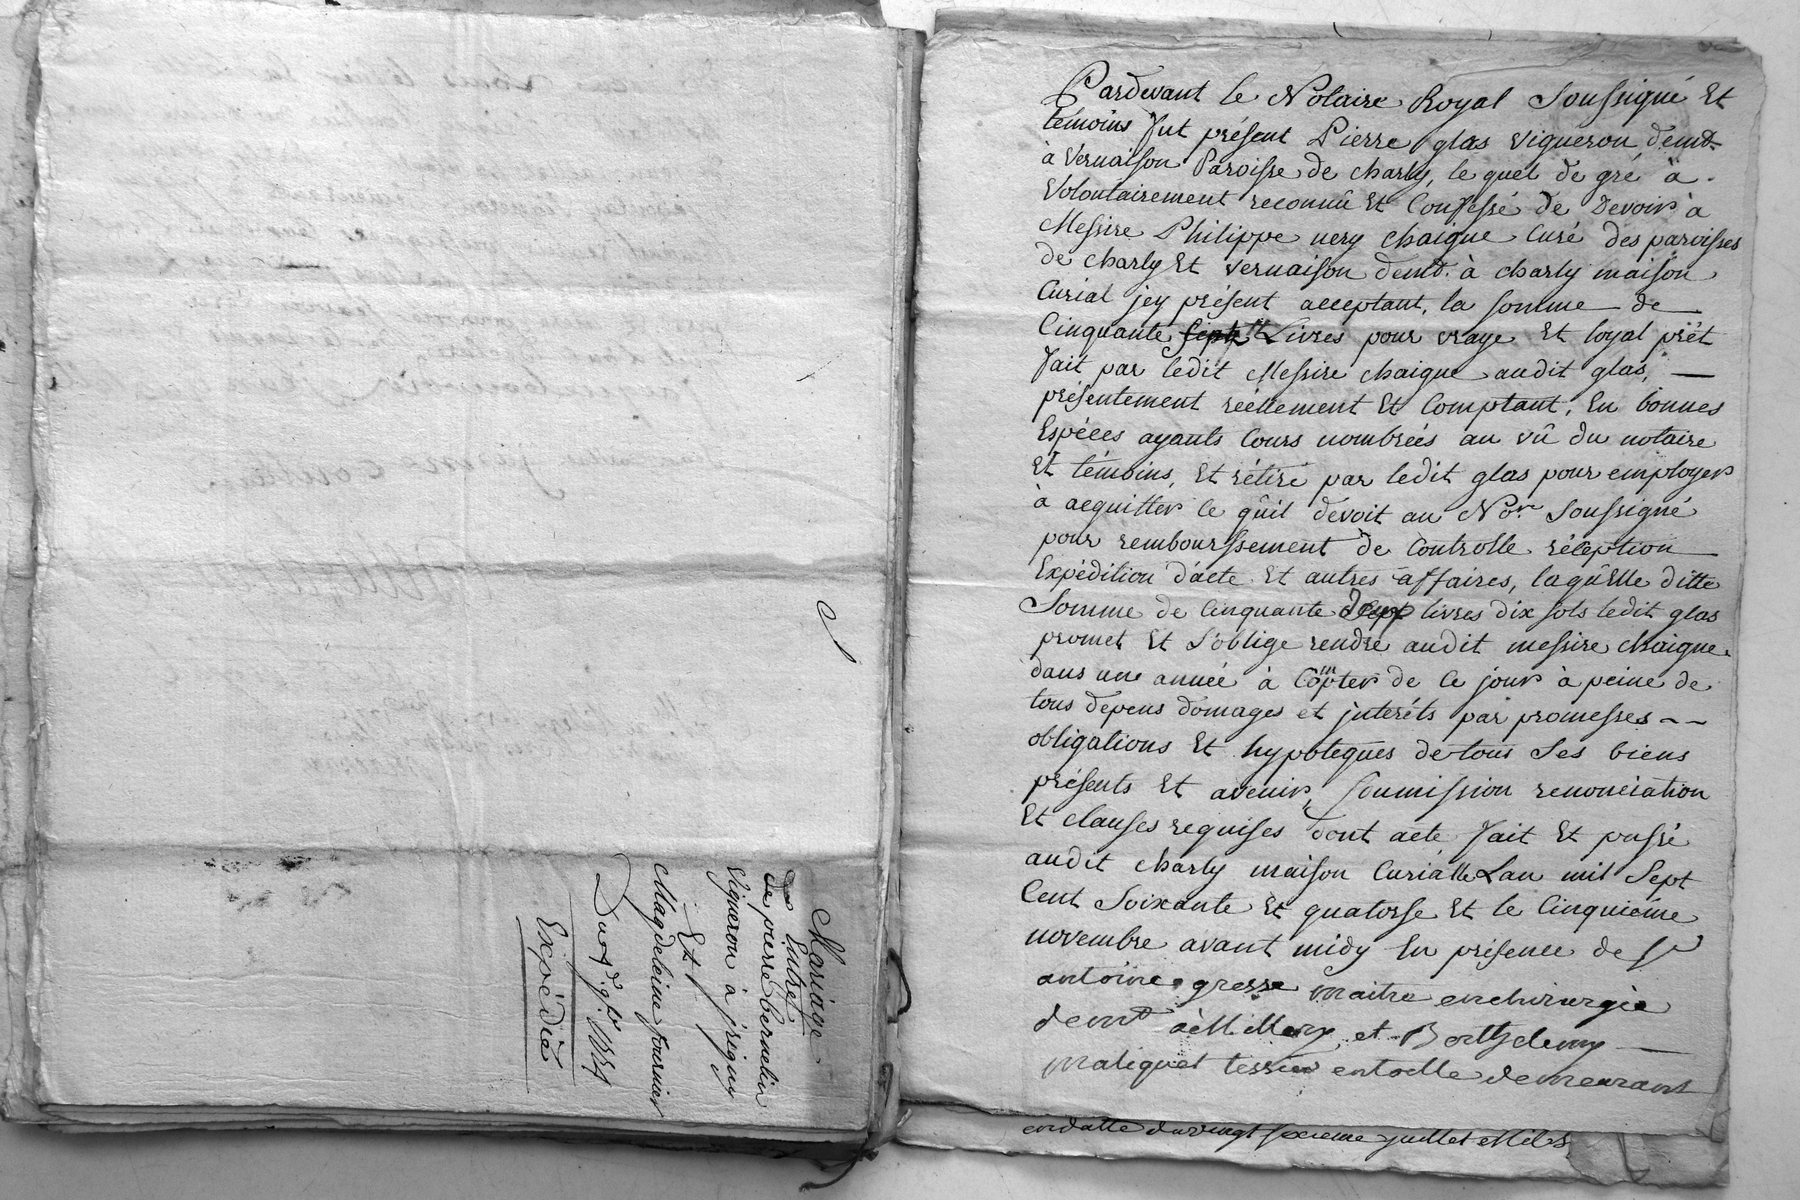 Mariage
Entre
de pierre bernelin
vigneron à jrigny
Et
Magdeleine fournier
Du 4 9bre 1774
Expédié
Pardevant le Notaire Royal Soussigné Et
témoins fut présent Pierre glas vigneron demt
à vernaison Paroisse de charly, le quel de gré a
volontairement reconnû Et Confessé de Devoir à
Messire Philippe nery chaigne Curé des paroisses
de charly Et vernaison demt. à charly maison
Curial jcy présent acceptant, la somme de
Cinquante Livres pour vraye Et loyal prêt
fait par ledit Messire chaigne audit glas,
présentement réellement Et Comptant, En bonnes
Espéces ayants Cours nombrées au vû du notaire
Et témoins, Et rétiré par ledit glas pour employer
à acquitter ce qûil devoit au Nore Soussigné
pour rembourssement de Controlle réception
Expédition d'acte Et autres affaires, laqûelle ditte
Somme de Cinquante Deux livres dix sols ledit glas
promet Et s'oblige rendre audit messire chaigne
dans une année à Compter de Ce jour à peine de
tous depens domages et jnteréts par promesses
obligations Et hypoteques de tous Ses biens
présents Et avenir, soumission renonciation
Et clauses requises dont acte, fait Et passé
audit charly maison Curialle Lan mil Sept
Cent Soixante Et quatorse Et le Cinquiéme
novembre avant midy En présence de sr
antoine gresse maitre enchirurgie
demt à Millery, et Barthelemy
maliquet tessier entoille demeurant
endatte du vingt sixieme juillet